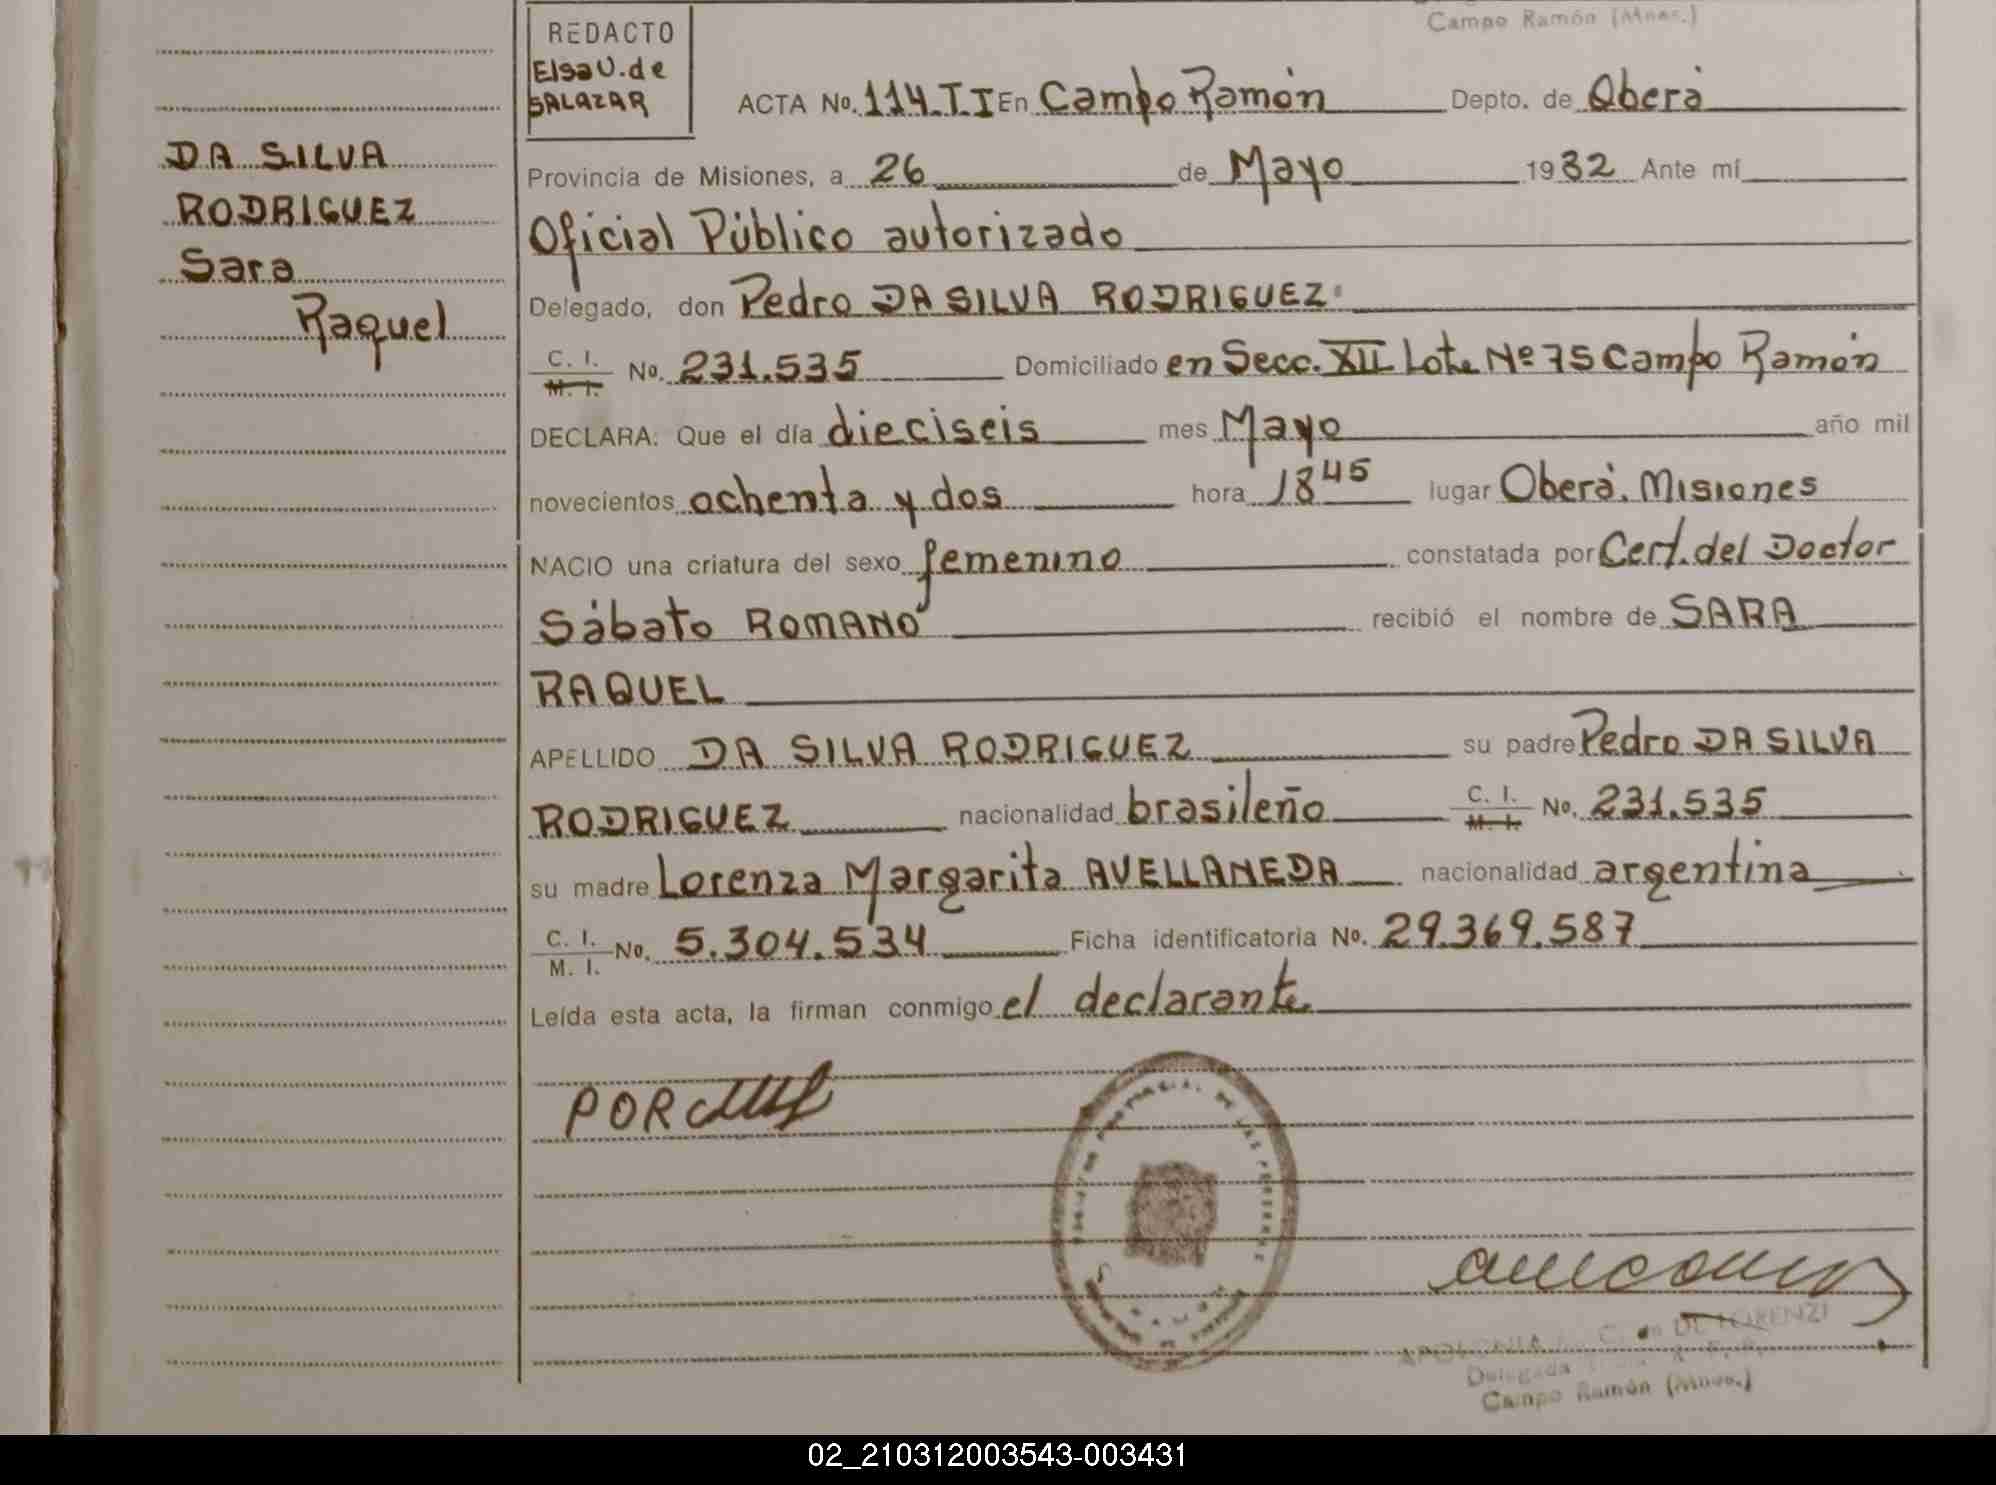 Campo Ramón (Mnes.)
REDACTO
Elsa U. de
SALAZAR
ACTA No. 114. T I En Campo Ramón Depto. de Oberá
DA SILVA
RODRIGUEZ
Sara
Raquel
Provincia de Misiones, a 26 de Mayo 1982 Ante mí
Oficial Público autorizado
Delegado, don Pedro DA SILVA RODRIGUEZ
C. I. M. I. No. 231.535 Domiciliado en Secc. XII Lote Nº 75 Campo Ramón
DECLARA: Que el día dieciseis mes Mayo año mil
novecientos ochenta y dos hora 18 45 lugar Oberá. Misiones
NACIO una criatura del sexo femenino constatada por Cert. del Doctor
Sábato ROMANO recibió el nombre de SARA
RAQUEL
APELLIDO DA SILVA RODRIGUEZ su padre Pedro DA SILVA
RODRIGUEZ nacionalidad brasileño C. I. M. I. No. 231.535
su madre Lorenza Margarita AVELLANEDA nacionalidad argentina
C. I. M. I. No. 5.304.534 Ficha identificatoria No. 29.369.587
Leída esta acta, la firman conmigo el declarante
DE LORENZI
Delegada
Campo Ramón (Mnes.)
02_210312003543-003431